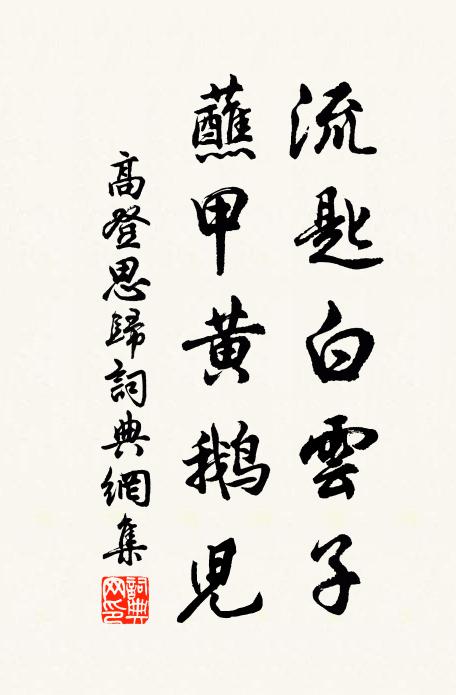 流匙白雲子
蘸甲黃鵝兒
高登思歸詞典網集
詞典網印